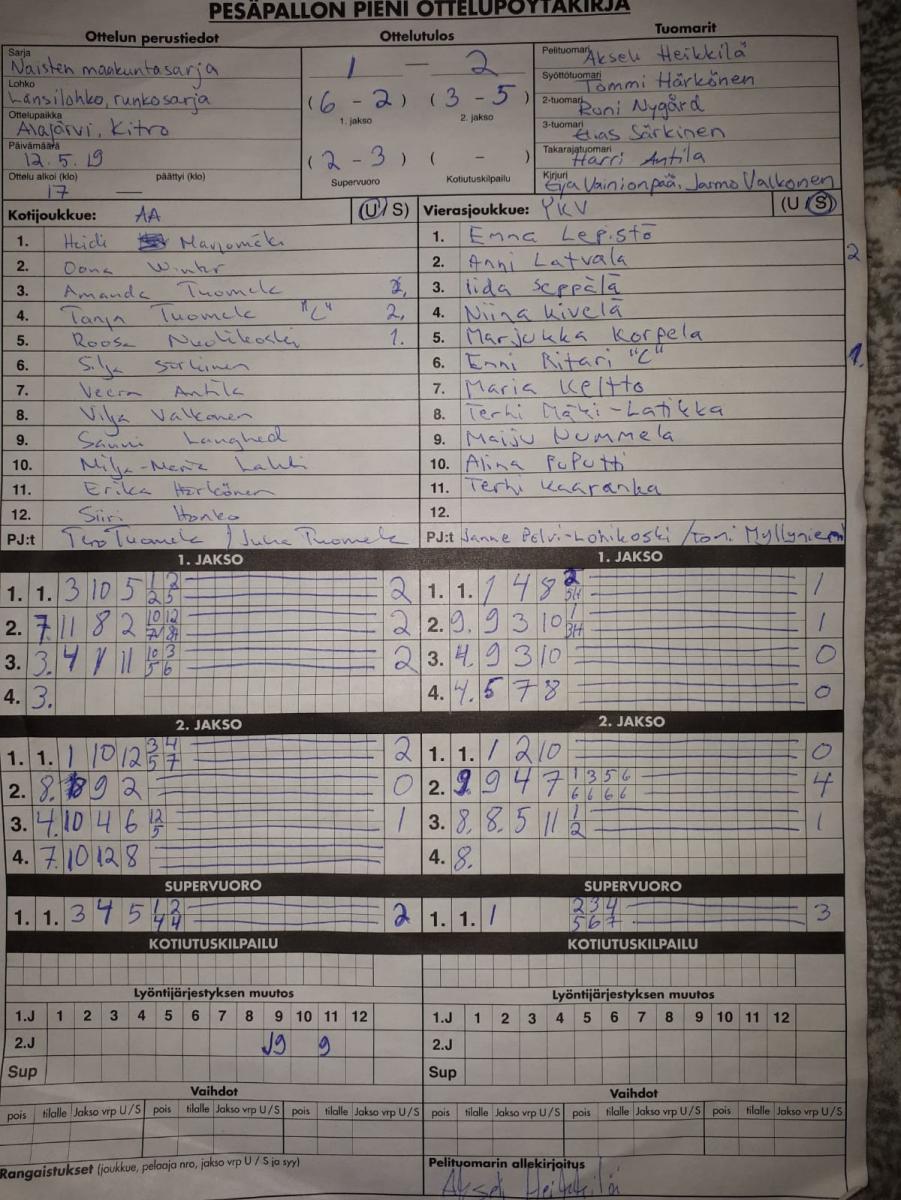 PESÄPALLON PIENI OTTELUPÖYTÄKIRJA
Ottelun perustiedot
Sarja
Naisten maakuntasarja
Lohko
Länsilohko, runkosarja
Ottelupaikka
Alajärvi, Kitro
Päivämäärä
12.5.19
Ottelu alkoi (klo) päättyi (klo)
17 —
Ottelutulos
1 — 2
(6 - 2) (3 - 5)
1. jakso 2. jakso
(2 - 3) ( - )
Supervuoro Kotiutuskilpailu
Tuomarit
Pelituomari Akseli Heikkilä
Syöttötuomari Tommi Härkönen
2-tuomari Roni Nygård
3-tuomari Elias Särkinen
Takarajatuomari Harri Antila
Kirjuri Eija Vainionpää, Jarmo Valkonen
Kotijoukkue: AA (U/S)
1. Heidi Marjomäki
2. Oona Winter
3. Amanda Tuomela
4. Tanja Tuomela "C" 2.
5. Roosa 1.
6. Silja Särkinen
7. Veera Antila
8. Vilja Valkonen
9. Sanni Langhed
10. Milja-Maria Lahti
11. Erika Härkönen
12. Siiri Honko
PJ:t Tero Tuomela / Juha Tuomela
Vierasjoukkue: YKV (U/S)
1. Emna Lepistö
2. Anni Latvala 2
3. Iida Seppälä
4. Niina Kivelä
5. Marjukka Korpela
6. Enni Ritari "C" 1.
7. Maria Keltto
8. Terhi Mäki-Latikka
9. Maiju Nummela
10. Alina Puputti
11. Terhi Kaaranka
12.
PJ:t Janne Polvi-Lohikoski / Toni Myllyniemi
1. JAKSO
1. 1. 3 10 5 1 2 2
2 5
2. 7. 11 8 2 10 12 2
3. 3. 4 1 11 10 3 2
5 6
4. 3.
1. JAKSO
1. 1. 1 4 8 2 1
5H
2. 9. 9 3 10 1 1
3H
3. 4. 9 3 10 0
4. 4. 5 7 8 0
2. JAKSO
1. 1. 1 10 12 3 4 2
5 7
2. 8. 9 2 0
3. 4. 10 4 6 12 1
5
4. 7. 10 12 8
2. JAKSO
1. 1. 1 2 10 0
2. 9. 9 4 7 1 3 5 6 4
6 6 6 6
3. 8. 8 5 11 1 1
2
4. 8.
SUPERVUORO
1. 1. 3 4 5 1 2 2
4 4
SUPERVUORO
1. 1. 1 2 3 4 3
5 6 7
KOTIUTUSKILPAILU
KOTIUTUSKILPAILU
Lyöntijärjestyksen muutos
1.J 1 2 3 4 5 6 7 8 9 10 11 12
2.J J9 9
Sup
Lyöntijärjestyksen muutos
1.J 1 2 3 4 5 6 7 8 9 10 11 12
2.J
Sup
Vaihdot
pois tilalle Jakso vrp U/S pois tilalle Jakso vrp U/S pois tilalle Jakso vrp U/S
Vaihdot
pois tilalle Jakso vrp U/S pois tilalle Jakso vrp U/S pois tilalle Jakso vrp U/S
Rangaistukset (joukkue, pelaaja nro, jakso vrp U / S ja syy)
Pelituomarin allekirjoitus
Akseli Heikkilä